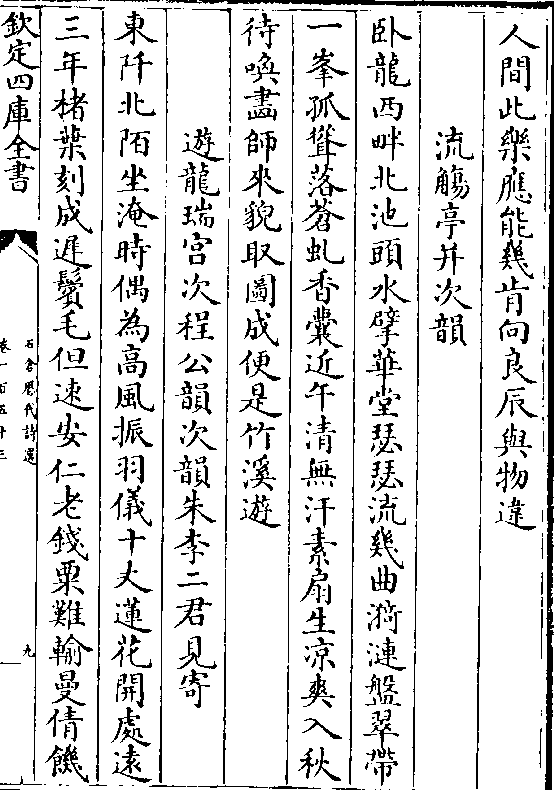 人間此樂應能幾肯向良辰與物違
流觴亭并次韻
卧龍西畔北池頭水擘華堂瑟瑟流幾曲漪漣盤翠帶
一峯孤聳落蒼虬香囊近午清無汗素扇生凉爽入秋
待喚畵師來貌取圖成便是竹溪遊
遊龍瑞宫次程公韻次韻朱李二君見寄
東阡北陌坐淹時偶為高風振羽儀十丈蓮花開處逺
三年楮葉刻成遲鬢毛但速安仁老錢粟難輸曼倩饑
欽定四庫全書
石倉歷代詩選
卷一百五十三
九